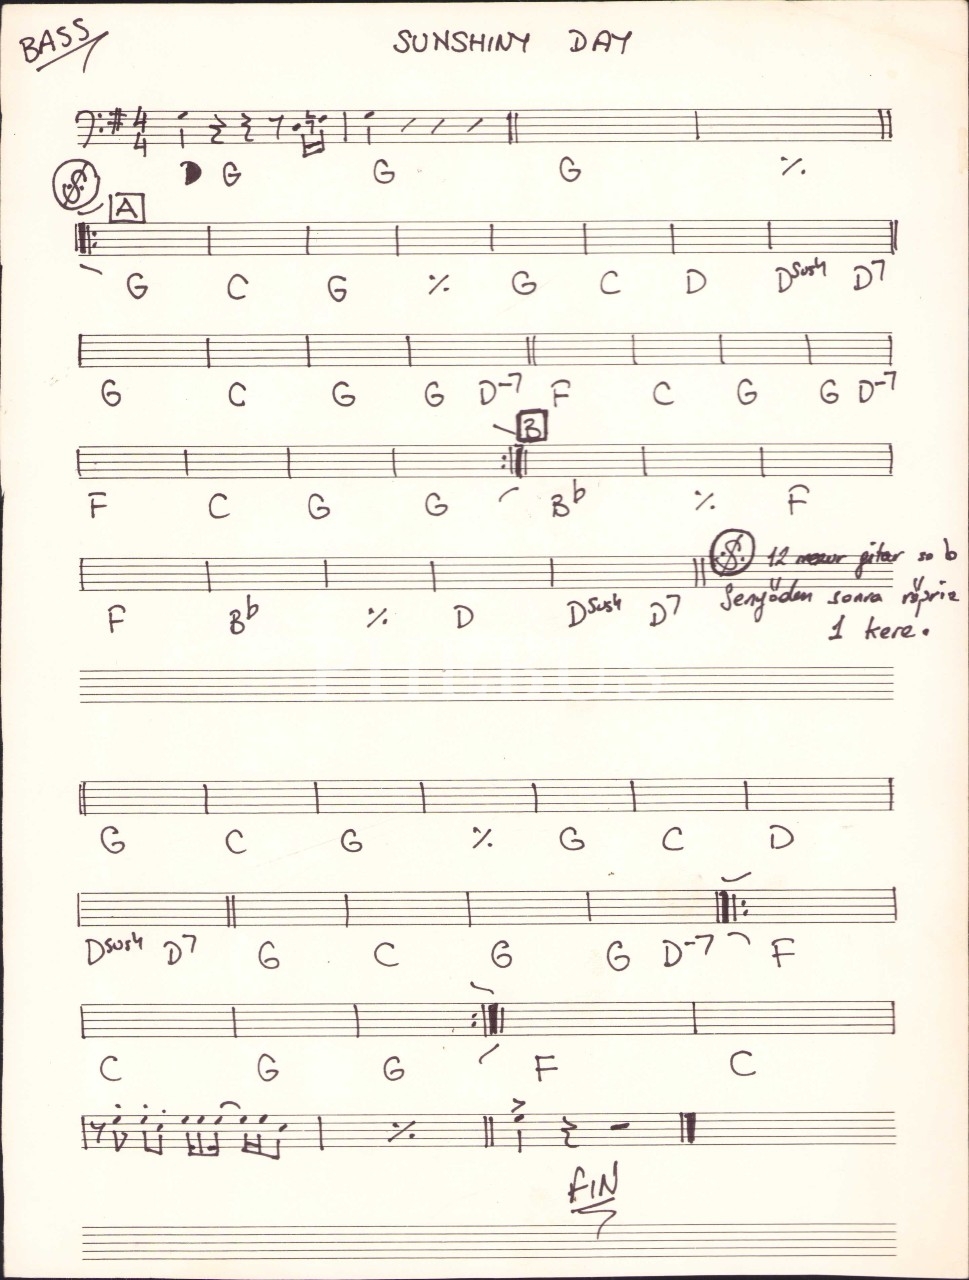 BASS
SUNSHINY DAY
4 4
G G G ٪
A
G C G ٪ G C D Dsus4 D7
G C G G D-7 F C G G D-7
B
F C G G Bb ٪ F
12 mezur gitar solo
F Bb ٪ D Dsus4 D7 Senyöden sonra röpriz
1 kere.
G C G ٪ G C D
Dsus4 D7 G C G G D-7 F
C G G F C
٪
FIN